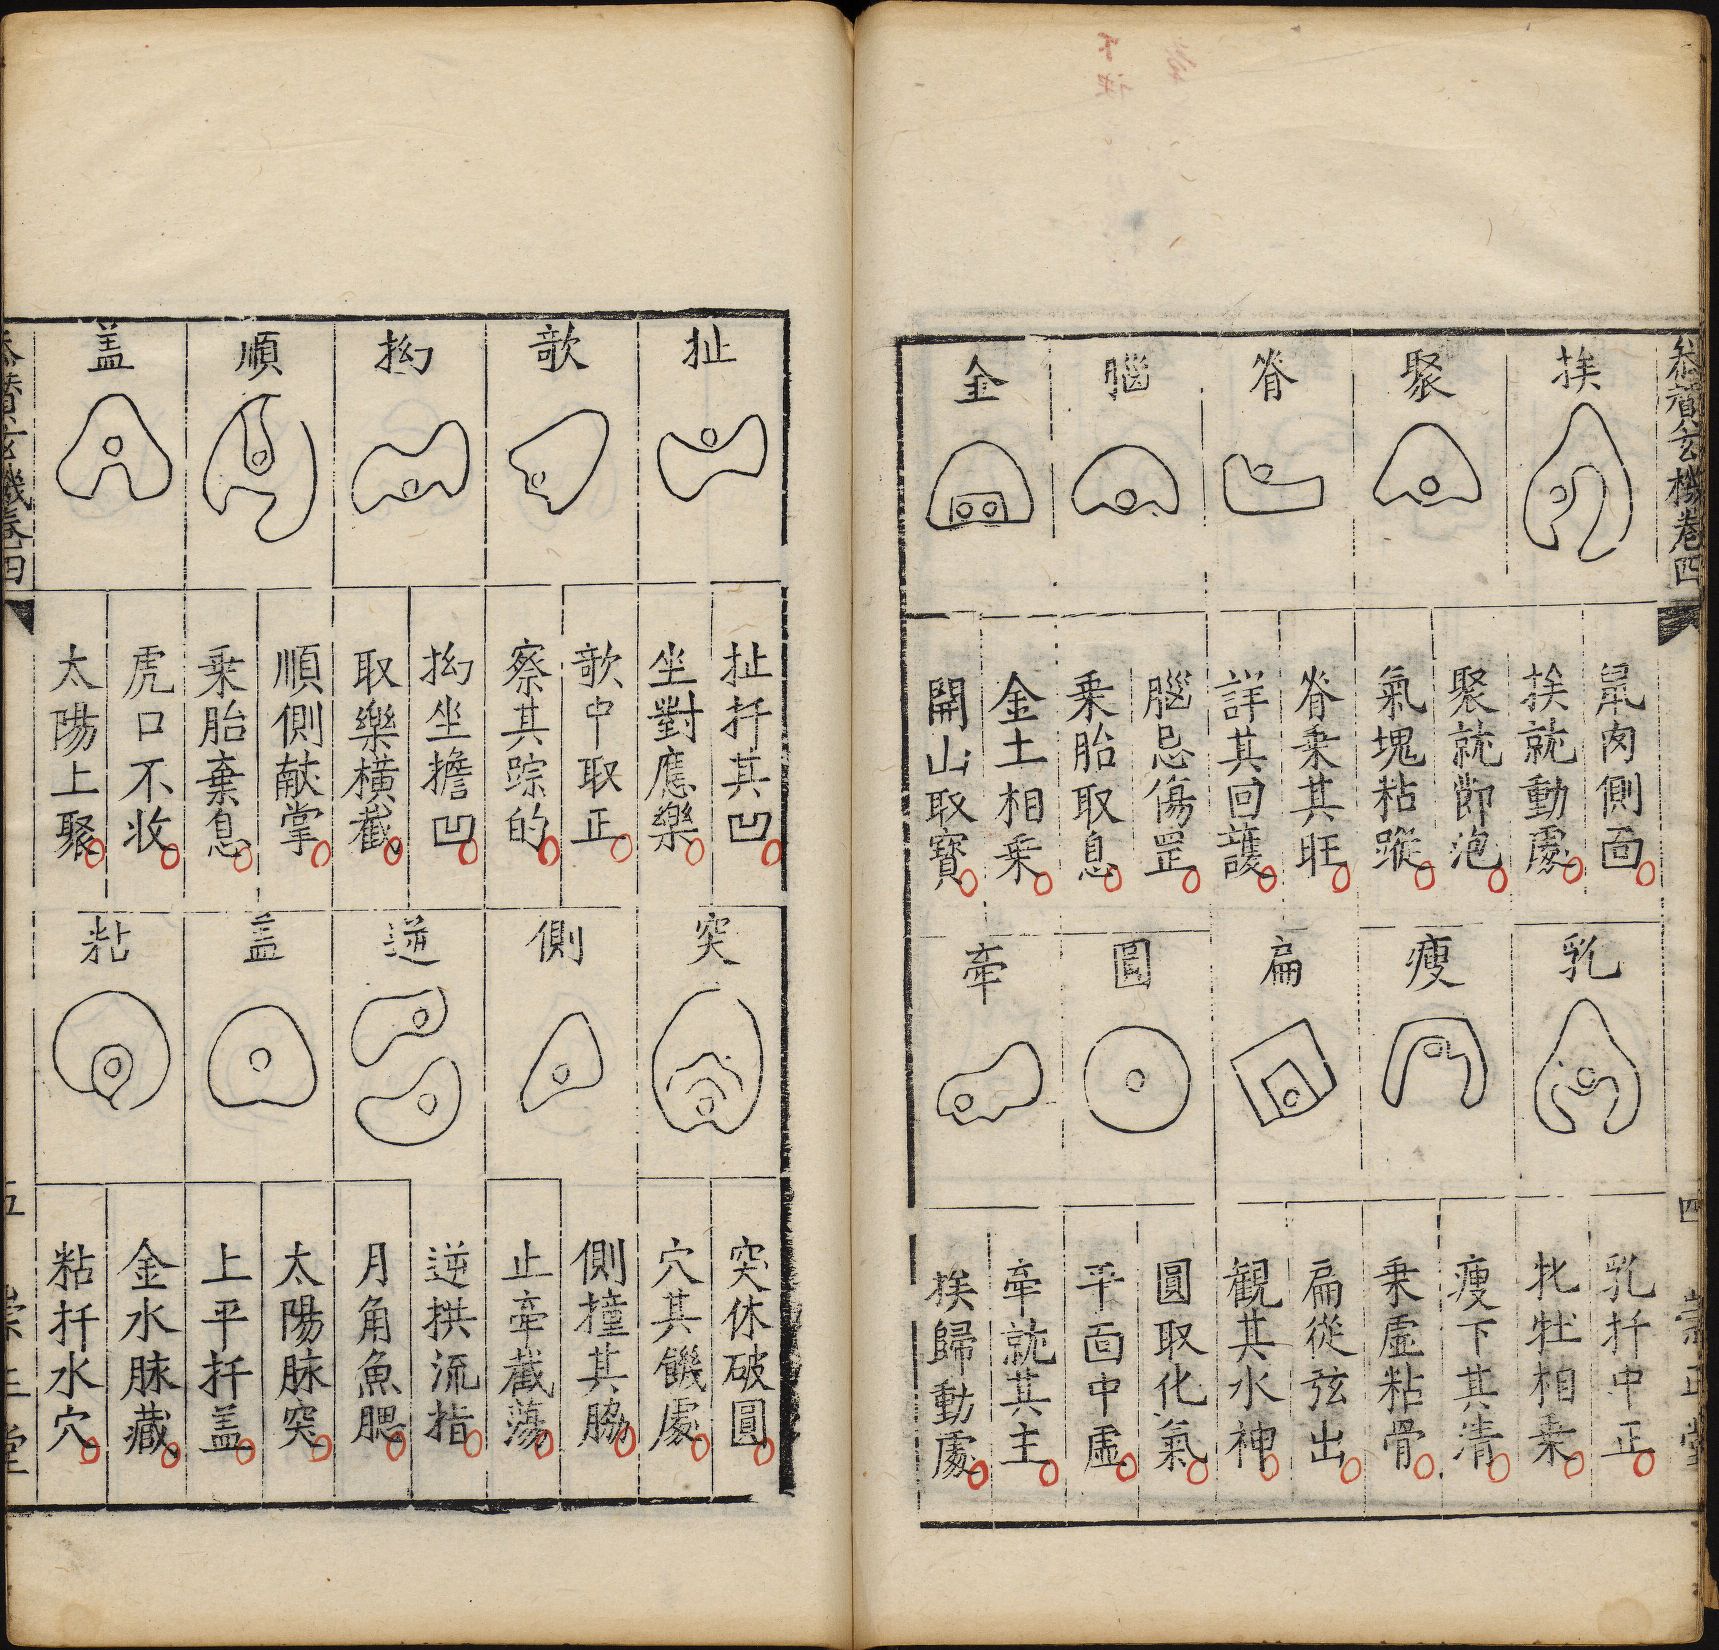 參贊玄機卷四
四
崇正堂
挨
聚
脊
腦
金
鼠肉側面
挨就動處
聚就節泡
氣塊粘蹤
脊乗其旺
詳其回護
腦忌傷罡
乗胎取息
金土相乗
開山取寳
乳
瘦
扁
圓
牽
乳扦中正
牝牡相乗
瘦下其清
乗虛粘骨
扁從弦出
観其水神
圓取化氣
平面中虛
牽就其主
挨歸動處
扯
歆
抝
順
盖
扯扦其凹
坐對應樂
歆中取正
察其踪的
抝坐擔凹
取樂橫截
順側献掌
乗胎棄息
虎口不收
太陽上聚
突
側
逆
盖
粘
突休破圓
穴其饑處
側撞其脇
止牽截蕩
逆拱流指
月角魚腮
太陽脉突
上平扦盖
金水脉藏
粘扦水穴
參贊玄機卷四
五
崇正堂